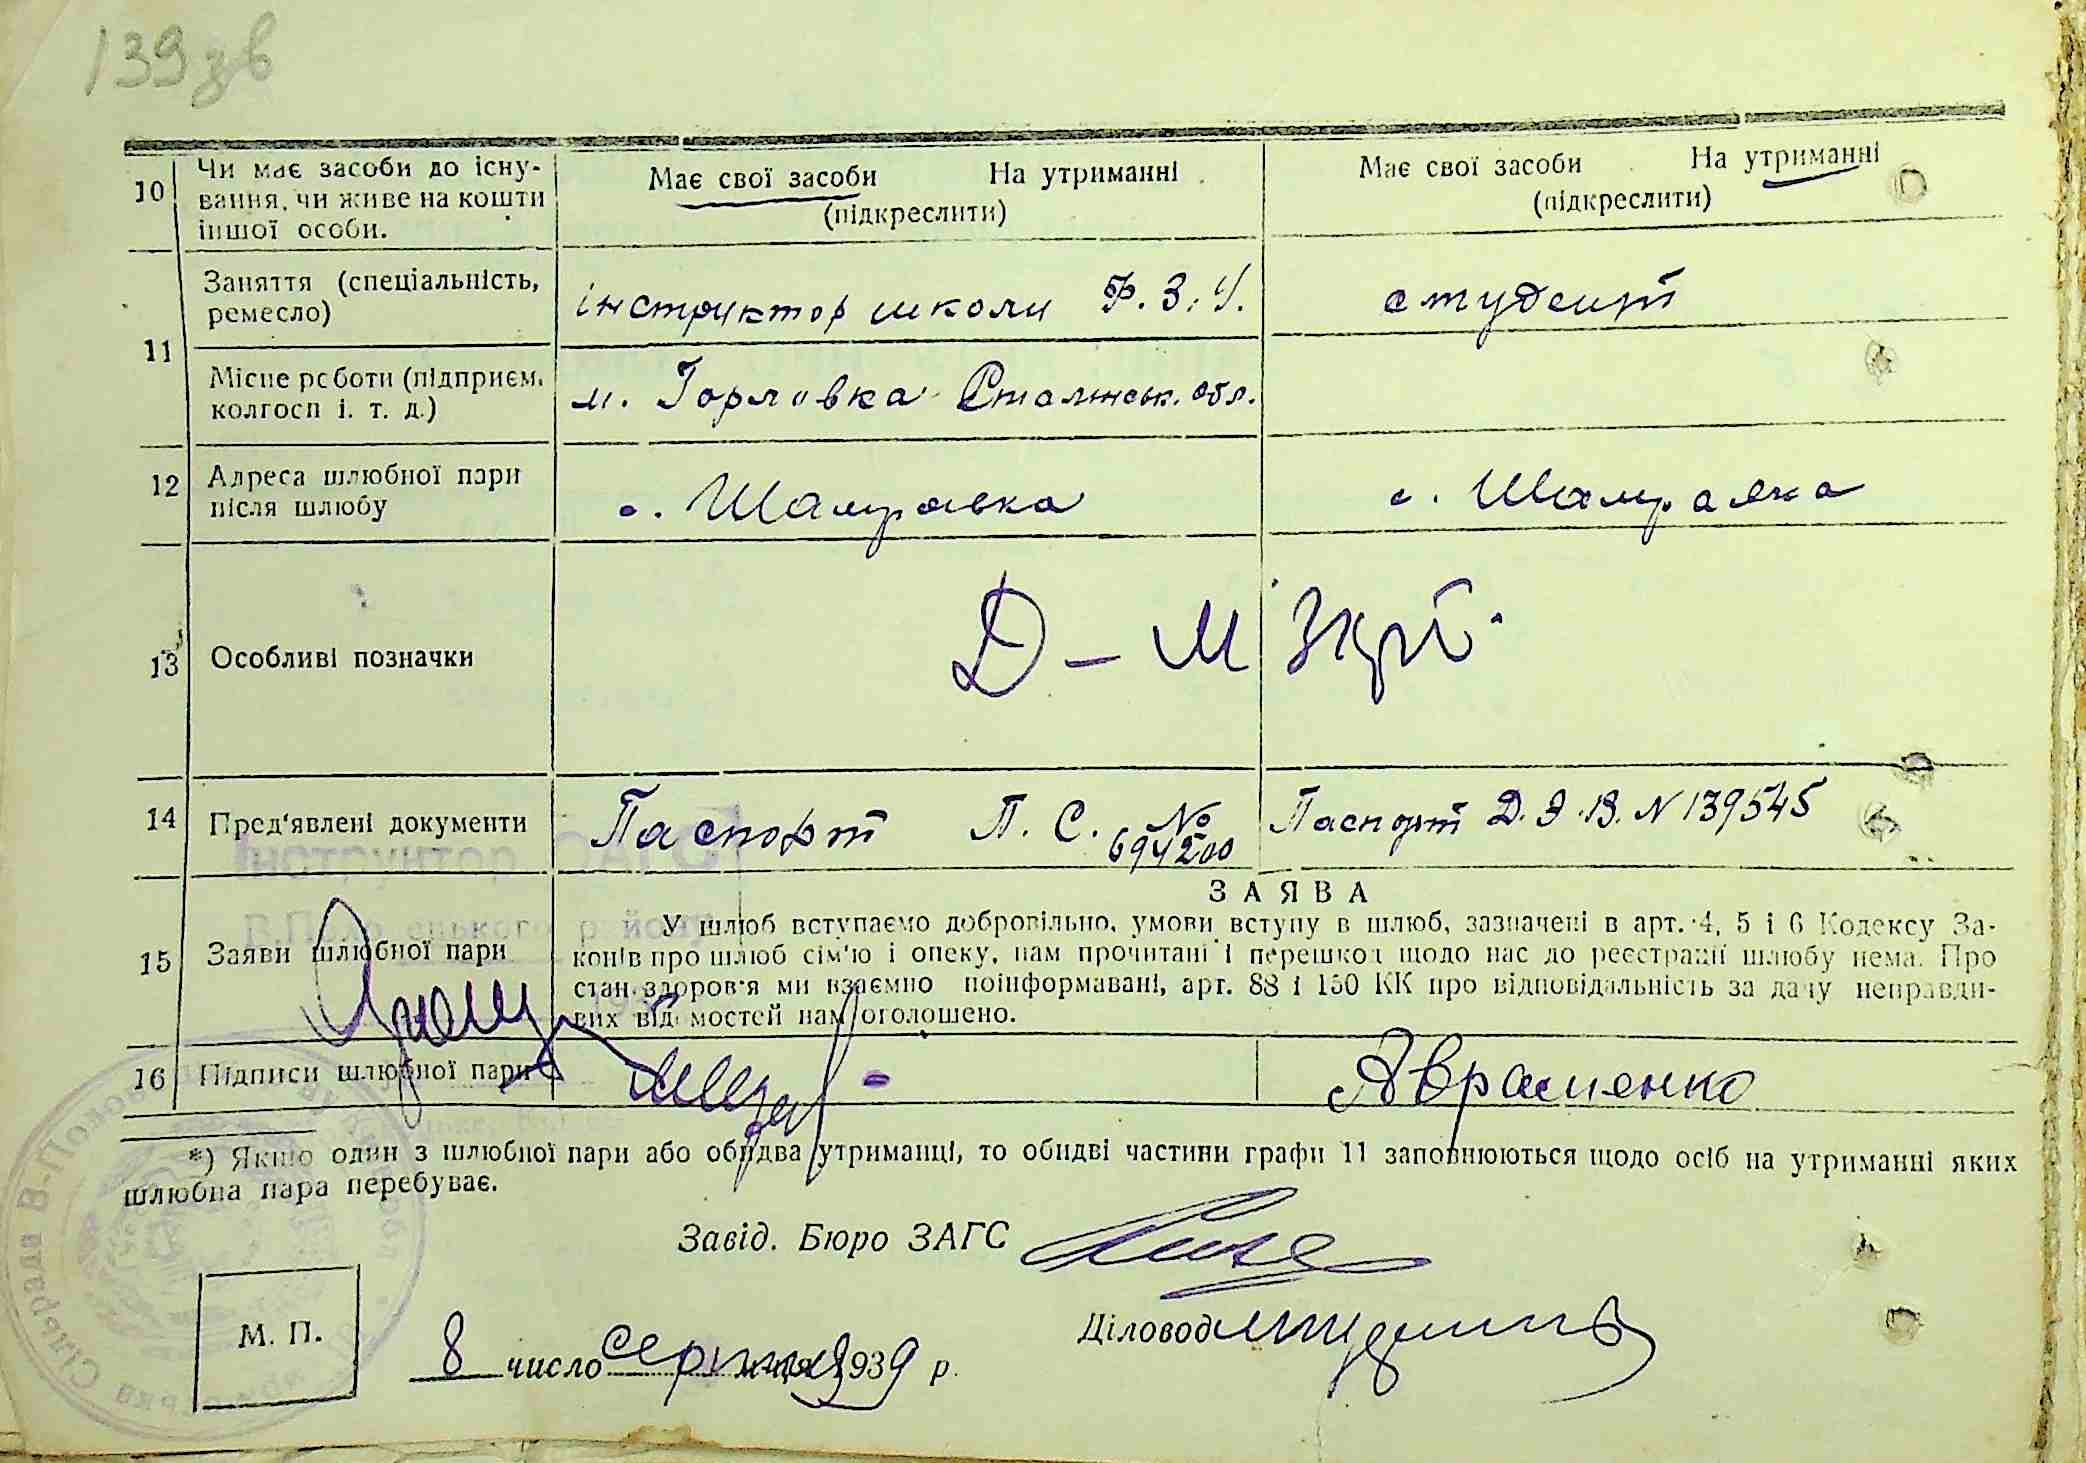 139 зв
10 Чи має засоби до існу-
вання, чи живе на кошти
іншої особи.
Має свої засоби На утриманні
(підкреслити)
Має свої засоби На утриманні
(підкреслити)
11 Заняття (спеціальність,
ремесло)
інструктор школи Ф.З.У.
студент
Місце роботи (підприєм.
колгосп і. т. д.)
м. Горловка Сталінськ. обл.
12 Адреса шлюбної пари
після шлюбу
с. Шамраєвка
с. Шамраєвка
13 Особливі позначки
Д – М
14 Пред'явлені документи
Паспорт П. С. № 694200
Паспорт Д.Э.В. N 139545
Інструктор ЗАГС
ЗАЯВА
15 Заяви шлюбної пари
У шлюб вступаємо добровільно, умови вступу в шлюб, зазначені в арт. 4, 5 і 6 Кодексу За-
конів про шлюб сім'ю і опеку, нам прочитані і перешкод щодо нас до реєстрації шлюбу нема. Про
стан здоров'я ми взаємно поінформавані, арт. 88 і 150 КК про відповідальність за дачу неправди-
вих відомостей нам оголошено.
16 Підписи шлюбної пари
Авраменко
*) Якщо один з шлюбної пари або обидва утриманці, то обидві частини графи 11 заповнюються щодо осіб на утриманні яких
шлюбна пара перебуває.
Завід. Бюро ЗАГС
М. П.
Діловод
8 число серпня 1939 р.